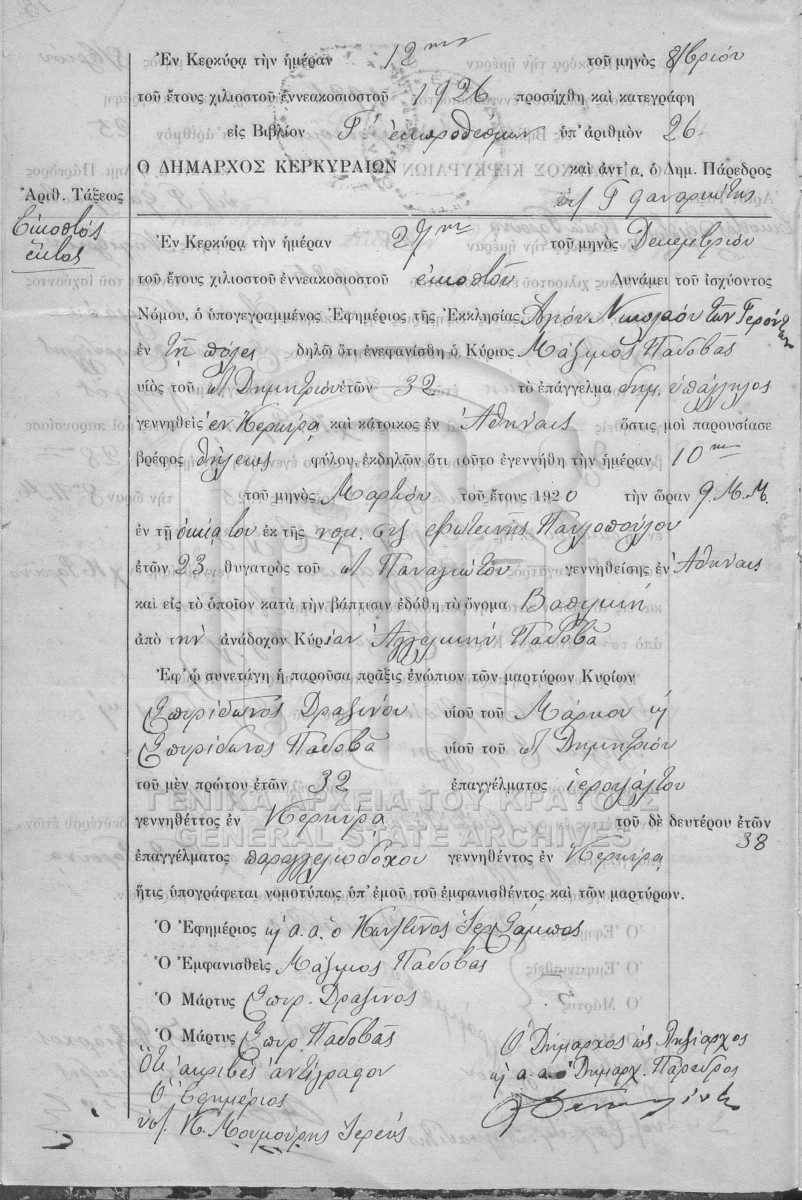 Ἐν Κερκύρᾳ τὴν ἡμέραν 12ην τοῦ μηνὸς 8/βρίου
τοῦ ἔτους χιλιοστοῦ ἐννεακοσιοστοῦ 1926 προσήχθη καὶ κατεγράφη
εἰς Βιβλίον Γ' ἐκπροθέσμων ὑπ' ἀριθμὸν 26
Ο ΔΗΜΑΡΧΟΣ ΚΕΡΚΥΡΑΙΩΝ καὶ ἀντ' α. ὁ Δημ. Πάρεδρος
Ἀριθ. Τάξεως
Εἰκοστός
ἕκτος
Ἐν Κερκύρᾳ τὴν ἡμέραν 27ην τοῦ μηνὸς Δεκεμβρίου
τοῦ ἔτους χιλιοστοῦ ἐννεακοσιοστοῦ εἰκοστοῦ Δυνάμει τοῦ ἰσχύοντος
Νόμου, ὁ ὑπογεγραμμένος Ἐφημέριος τῆς Ἐκκλησίας Ἁγίου Νικολάου τῶν Γερόντων
ἐν τῇ πόλει δηλῶ ὅτι ἐνεφανίσθη ὁ Κύριος Μάξιμος Παδοβᾶς
υἱὸς τοῦ Δημητρίου ἐτῶν 32 τὸ ἐπάγγελμα δημ. ὑπάλληλος
γεννηθεὶς ἐν Κερκύρᾳ καὶ κάτοικος ἐν Ἀθήναις ὅστις μοὶ παρουσίασε
βρέφος θήλεως φύλου, ἐκδηλῶν ὅτι τοῦτο ἐγεννήθη τὴν ἡμέραν 10ην
τοῦ μηνὸς Μαρτίου τοῦ ἔτους 1920 τὴν ὥραν 9 Μ.Μ.
ἐν τῇ οἰκίᾳ του ἐκ τῆς νομ. συζ Φωτεινῆς Παυλοπούλου
ἐτῶν 23 θυγατρὸς τοῦ Παναγιώτου γεννηθείσης ἐν Ἀθήναις
καὶ εἰς τὸ ὁποῖον κατὰ τὴν βάπτισιν ἐδόθη τὸ ὄνομα Βασιλική
ἀπὸ τὴν ἀνάδοχον Κύριαν Ἀγγελικὴν Παδοβᾶ
Ἐφ' ᾧ συνετάγη ἡ παροῦσα πρᾶξις ἐνώπιον τῶν μαρτύρων Κυρίων
Σπυρίδωνος Δραζίνου υἱοῦ τοῦ Μάρκου κ
Σπυρίδωνος Παδοβᾶ υἱοῦ τοῦ Δημητρίου
τοῦ μὲν πρώτου ἐτῶν 32 ἐπαγγέλματος ἱεροψάλτου
γεννηθέττος ἐν Κερκύρᾳ τοῦ δὲ δευτέρου ἐτῶν
38
ἐπαγγέλματος παραγγελιοδόχου γεννηθέντος ἐν Κερκύρᾳ
ἥτις ὑπογράφεται νομοτύπως ὑπ' ἐμοῦ τοῦ ἐμφανισθέντος καὶ τῶν μαρτύρων.
ΓΕΝΙΚΑ ΑΡΧΕΙΑ ΤΟΥ ΚΡΑΤΟΥΣ
GENERAL STATE ARCHIVES
Ὁ Ἐφημέριος κ α. α. ὁ Κων/τῖνος
Ὁ Ἐμφανισθεὶς Μάξιμος Παδοβᾶς
Ὁ Μάρτυς Σπυρ. Δραζίνος
Ὁ Μάρτυς Σπυρ. Παδοβᾶς
Ὅτι ἀκριβὲς ἀντίγραφον
Ὁ Ἐφημέριος
ὑπ. Κ. Μουμούρης Ἱερεύς
Ὁ Δήμαρχος ὡς Ληξίαρχος
κ α. α. ὁ Δημαρχ. Πάρεδρος